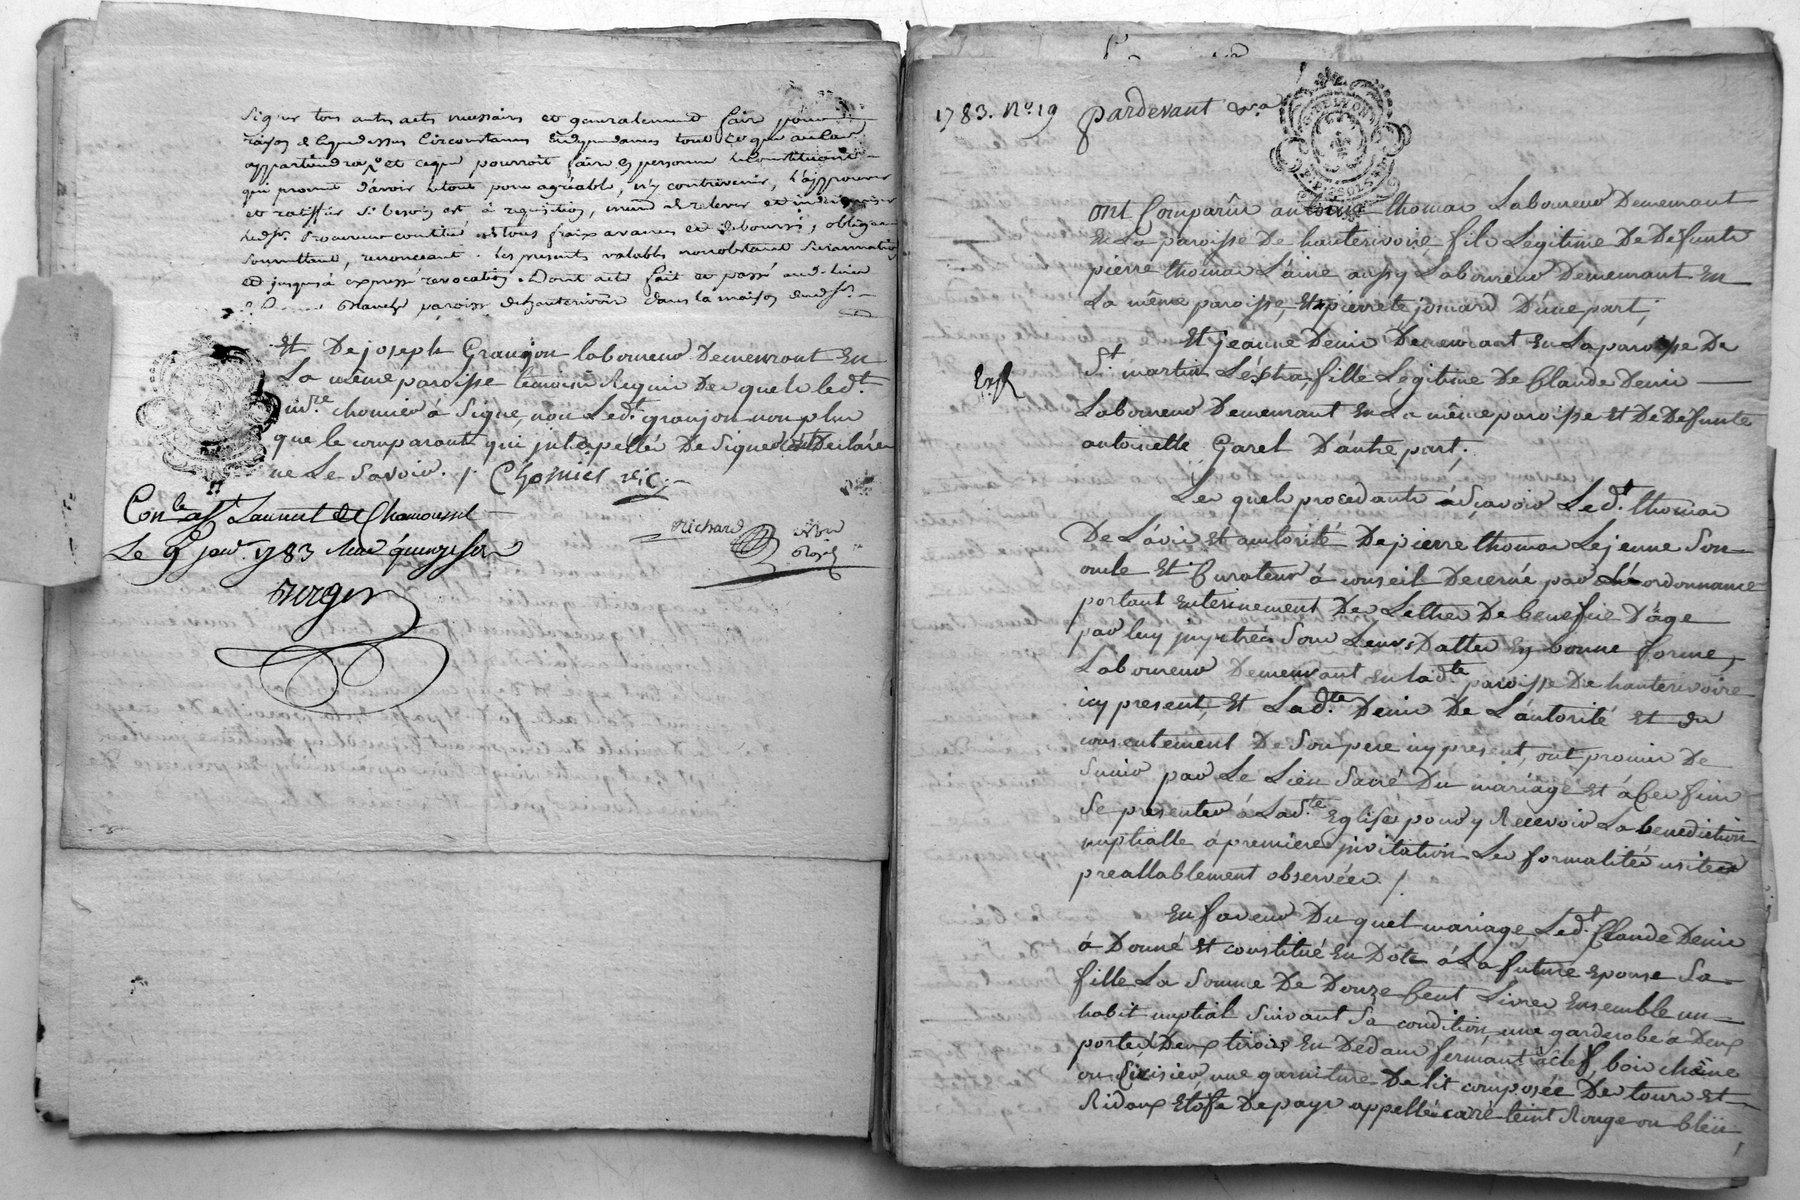 signer tous autres actes necessaires et generalement faire pour
raison de ce que dessus circonstances et dependances tout ce que au cas
appartiendra et ce que pourroit faire en personne le constituant
qui promet d'avoir le tout pour agréable, n'y contrevenir, l'approuver
et ratiffier si besoin est à requisition, même de relever et indemniser
ledsr. Procureur constitué de tous fraix avances et debourcé, obligeant
soumettant, renonceant. Les presents valables nonobstant surannation
et jusqu'à expresse revocation. Dont acte fait et passé aud. lieu
paroisse dehauterivoire dans la maison dudsr.
Et De joseph Granjon laboureur Demeurant En
La même paroisse temoins Requis Des quels ledt.
mre chomier à Signé, non Ledt. granjon non plus
que le comparant qui jnterpellés De Signer ont Déclaré
ne Le Savoir. /. Chomier vic.
Conle. à St Laurent de Chamousset
Le 9 janr. 1783 Reçu quinze sols
Richard
nore
Royal
Verger
1783. No. 19
pardevant
G. DE LYON
Ont Comparûs antoine thomas Laboureur Demeurant
En La paroisse De hauterivoire fils Legitime De Défunts
pierre thomas L'ainé aussy Laboureur Demeurant En
La même paroisse, Et pierrete jomard D'une part;
Et jeanne Denis Demeurant En La paroisse De
St. martin Léstra, fille Legitime De Claude Denis
Exp.
Laboureur Demeurant En La même paroisse Et De Défunte
antoinette Garel D'autre part;
Les quels procedants àSçavoir Ledt. thomas
De L'avis Et autorité De pierre thomas Lejeune Son
oncle Et Curateur à conseil Decerné par L'ordonnance
portant Enterinement De Lettres De benefice D'âge
par luy jmpétrées Sous Leurs Dattes En bonne forme,
Laboureur Demeurant En ladte. paroisse De hauterivoire
icy present, Et Ladte. Denis De L'autorité Et du
consentement De Son pere icy present, ont promis De
Sunir par Le Lien Sacré Du mariage Et àCes fins
Se presenter à Ladte. Eglise pour y Recevoir La benediction
nuptialle à premiere jnvitation Les formalités usitées
preallablement observées. /.
En faveur Du quel mariage Ledt. Claude Denis
à Donné Et constitué En Dôte à La future Epouse Sa
fille La Somme De Douze Cent Livres Ensemble un
habit nuptial Suivant Sa condition une garderobe à Deux
portes Deux tiroirs En Dedans fermant àclef, bois chêne
ou Cérisier, une garniture De lit composée De tours Et
Rideaux Etoffe De pays appellée caré teint Rouge ou bleü,